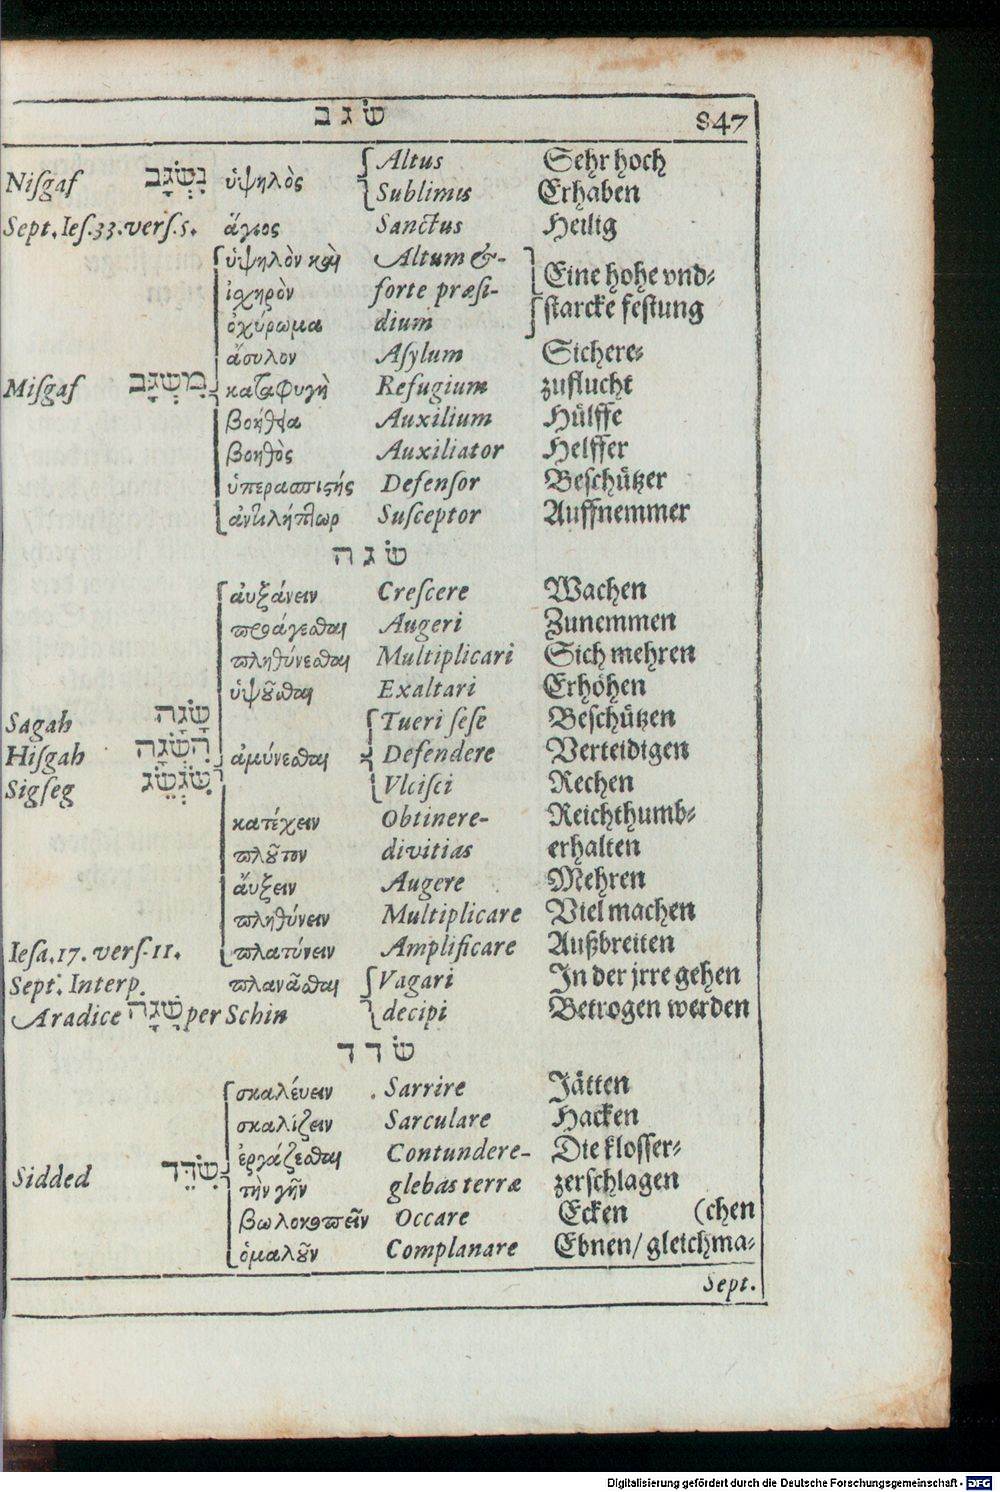 שׂ ג ב 847
Niſgaf נִשְׂגָּב ὑψηλὸς Altus Sehr hoch
Sublimis Erhaben
Sept. Ieſ.33.verſ.5. ἅγιος Sanctus Heilig
ὑψηλὸν καὶ Altum &- Eine hohe vnd⸗
ἰχηρὸν forte præſi- ſtarcke feſtung
ὀχύρωμα dium
ἄσυλον Aſylum Sichere⸗
Miſgaf מִשְׂגָּב καταφυγὴ Refugium zuflucht
βοήθεια Auxilium Hülffe
βοηθὸς Auxiliator Helffer
ὑπερασπιστής Defenſor Beſchützer
ἀντιλήπτωρ Suſceptor Auffnemmer
שׂ ג ה
ἀυξάνειν Creſcere Wachen
προάγεσθαι Augeri Zunemmen
πληθύνεσθαι Multiplicari Sich mehren
ὑψοῦσθαι Exaltari Erhöhen
Sagah שָׂגָה Tueri ſeſe Beſchützen
Hiſgah הִשְׂגָּה ἀμύνεσθαι Defendere Verteidigen
Sigſeg שִׂגְשֵׂג Vlciſci Rechen
κατέχειν Obtinere- Reichthumb⸗
πλοῦτον divitias erhalten
ἄυξειν Augere Mehren
πληθύνειν Multiplicare Viel machen
Ieſa.17. verſ.11. πλατύνειν Amplificare Außbreiten
Sept. Interp. πλανᾶσθαι Vagari In der jrre gehen
Aradice שָׁגָה per Schin decipi Betrogen werden
שׂ ד ד
σκαλέυειν Sarrire Jätten
σκαλίζειν Sarculare Hacken
ἐργάζεσθαι Contundere- Die kloſſer⸗
Sidded שִׂדֵּד τὴν γῆν glebas terræ zerſchlagen
βωλοκοπεῖν Occare Ecken (chen
ὁμαλοῦν Complanare Ebnen/ gleichma⸗
Sept.
Digitalisierung gefördert durch die Deutsche Forschungsgemeinschaft - DFG